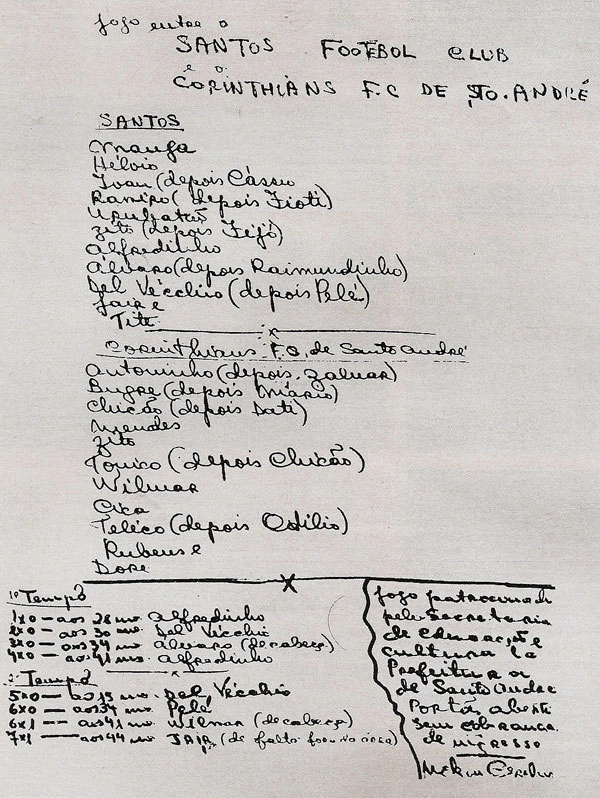 Jogo entre o
SANTOS FOOTEBOL CLUB
e o
CORINTHIANS F.C DE STO. ANDRÉ
SANTOS
Manga
Hélvio
Ivan (depois Cássio
Ramiro (depois Fioti)
Urubatão
Zito (depois Feijó)
Alfredinho
Álvaro (depois Raimundinho)
Del Vécchio (depois Pelé)
Jair e
Tite
Corinthians F.C. de Santo André
Antoninho (depois Zaluar)
Bugre (depois Mário)
Chicão (depois Dati)
Mendes
Zito
Tonico (depois Chicão)
Wilmar
Cica
Teléco (depois Odilio)
Rubens e
Dore
1º Tempo
1x0 — aos 28 m. Alfredinho
2x0 — aos 30 m. Del Vécchio
3x0 — aos 34 m. Álvaro (de cabeça)
4x0 — aos 41 m. Alfredinho
2º Tempo
5x0 — aos 15 m. Del Vécchio
6x0 — aos 34 m. Pelé
6x1 — aos 41 m. Wilmar (de cabeça)
7x1 — aos 44 m. JAIR (de falta fora da área)
Jogo patrocinado
pela Secretaria
de Educação e
cultura da
Prefeitura
de Santo André
Portão aberto
sem cobrança
de ingresso